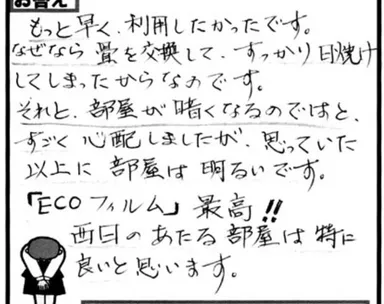 お答え
もっと早く、利用したかったです。
なぜなら 畳を交換して、すっかり日焼け
してしまったからなのです。
それと、部屋が暗くなるのではと、
すごく心配しましたが、思っていた
以上に 部屋は明るいです。
「ECOフィルム」最高!!
西日のあたる部屋は特に
良いと思います。